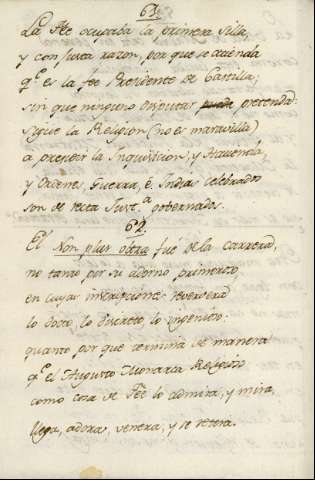 61
La Fée ocupaba la primera Silla,
y con justa razon, por que se atienda
q.e es la fee Presidente de Castilla,
sin que ninguno disputar pretenda:
Sigue la Religion (no es maravilla)
a preferir la Inquisicion, y Hacienda,
y Ordenes, Guerra, è Indias celebrados
son de recta Just.a gobernados.
62
El Non plus ultra fue de la carrera,
no tanto por su adorno primero,
en cuyas inscripciones reverbera
lo docto, lo discreto, lo ingenioso:
quanto por que termina de manera
q.e el Augusto Monarca Religioso
como cosa de Fée lo admira, y mira,
llega, adora, venera, y se retira.